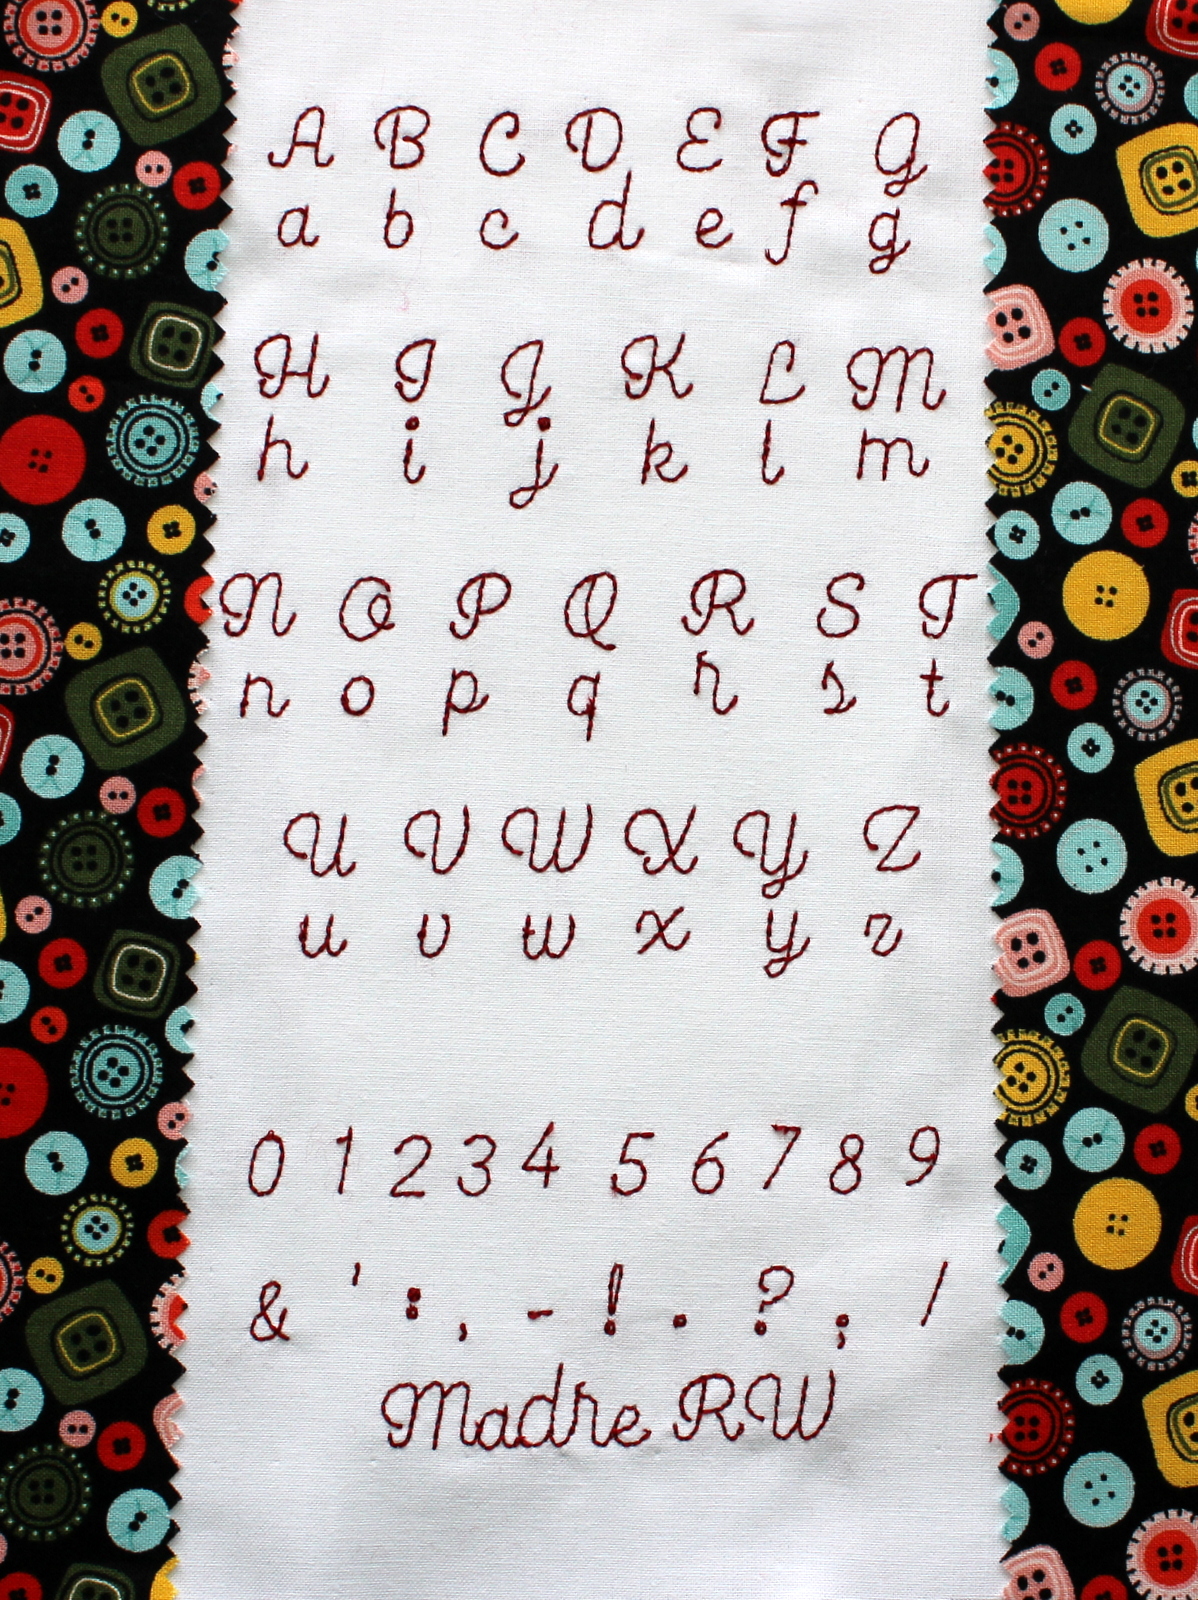 A B C D E F G
a b c d e f g
H I J K L M
h i j k l m
N O P Q R S T
n o p q r s t
U V W X Y Z
u v w x y z
0 1 2 3 4 5 6 7 8 9
& ' : , - ! . ? ; /
Madre RW